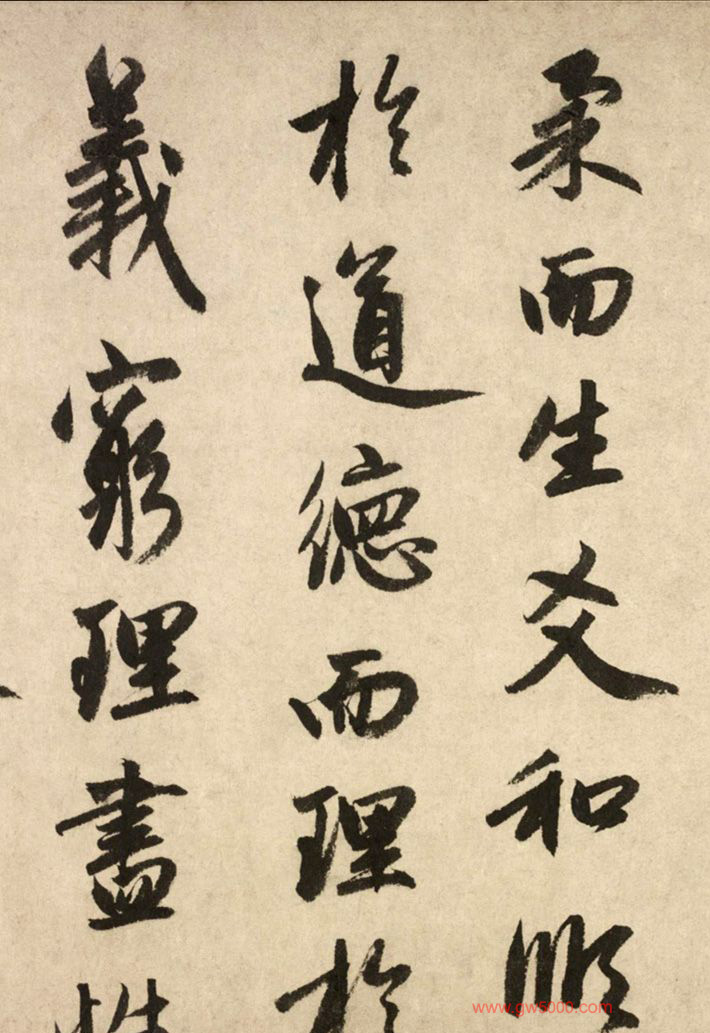 柔而生爻和順
於道德而理於
義窮理盡性
www.gw5000.com